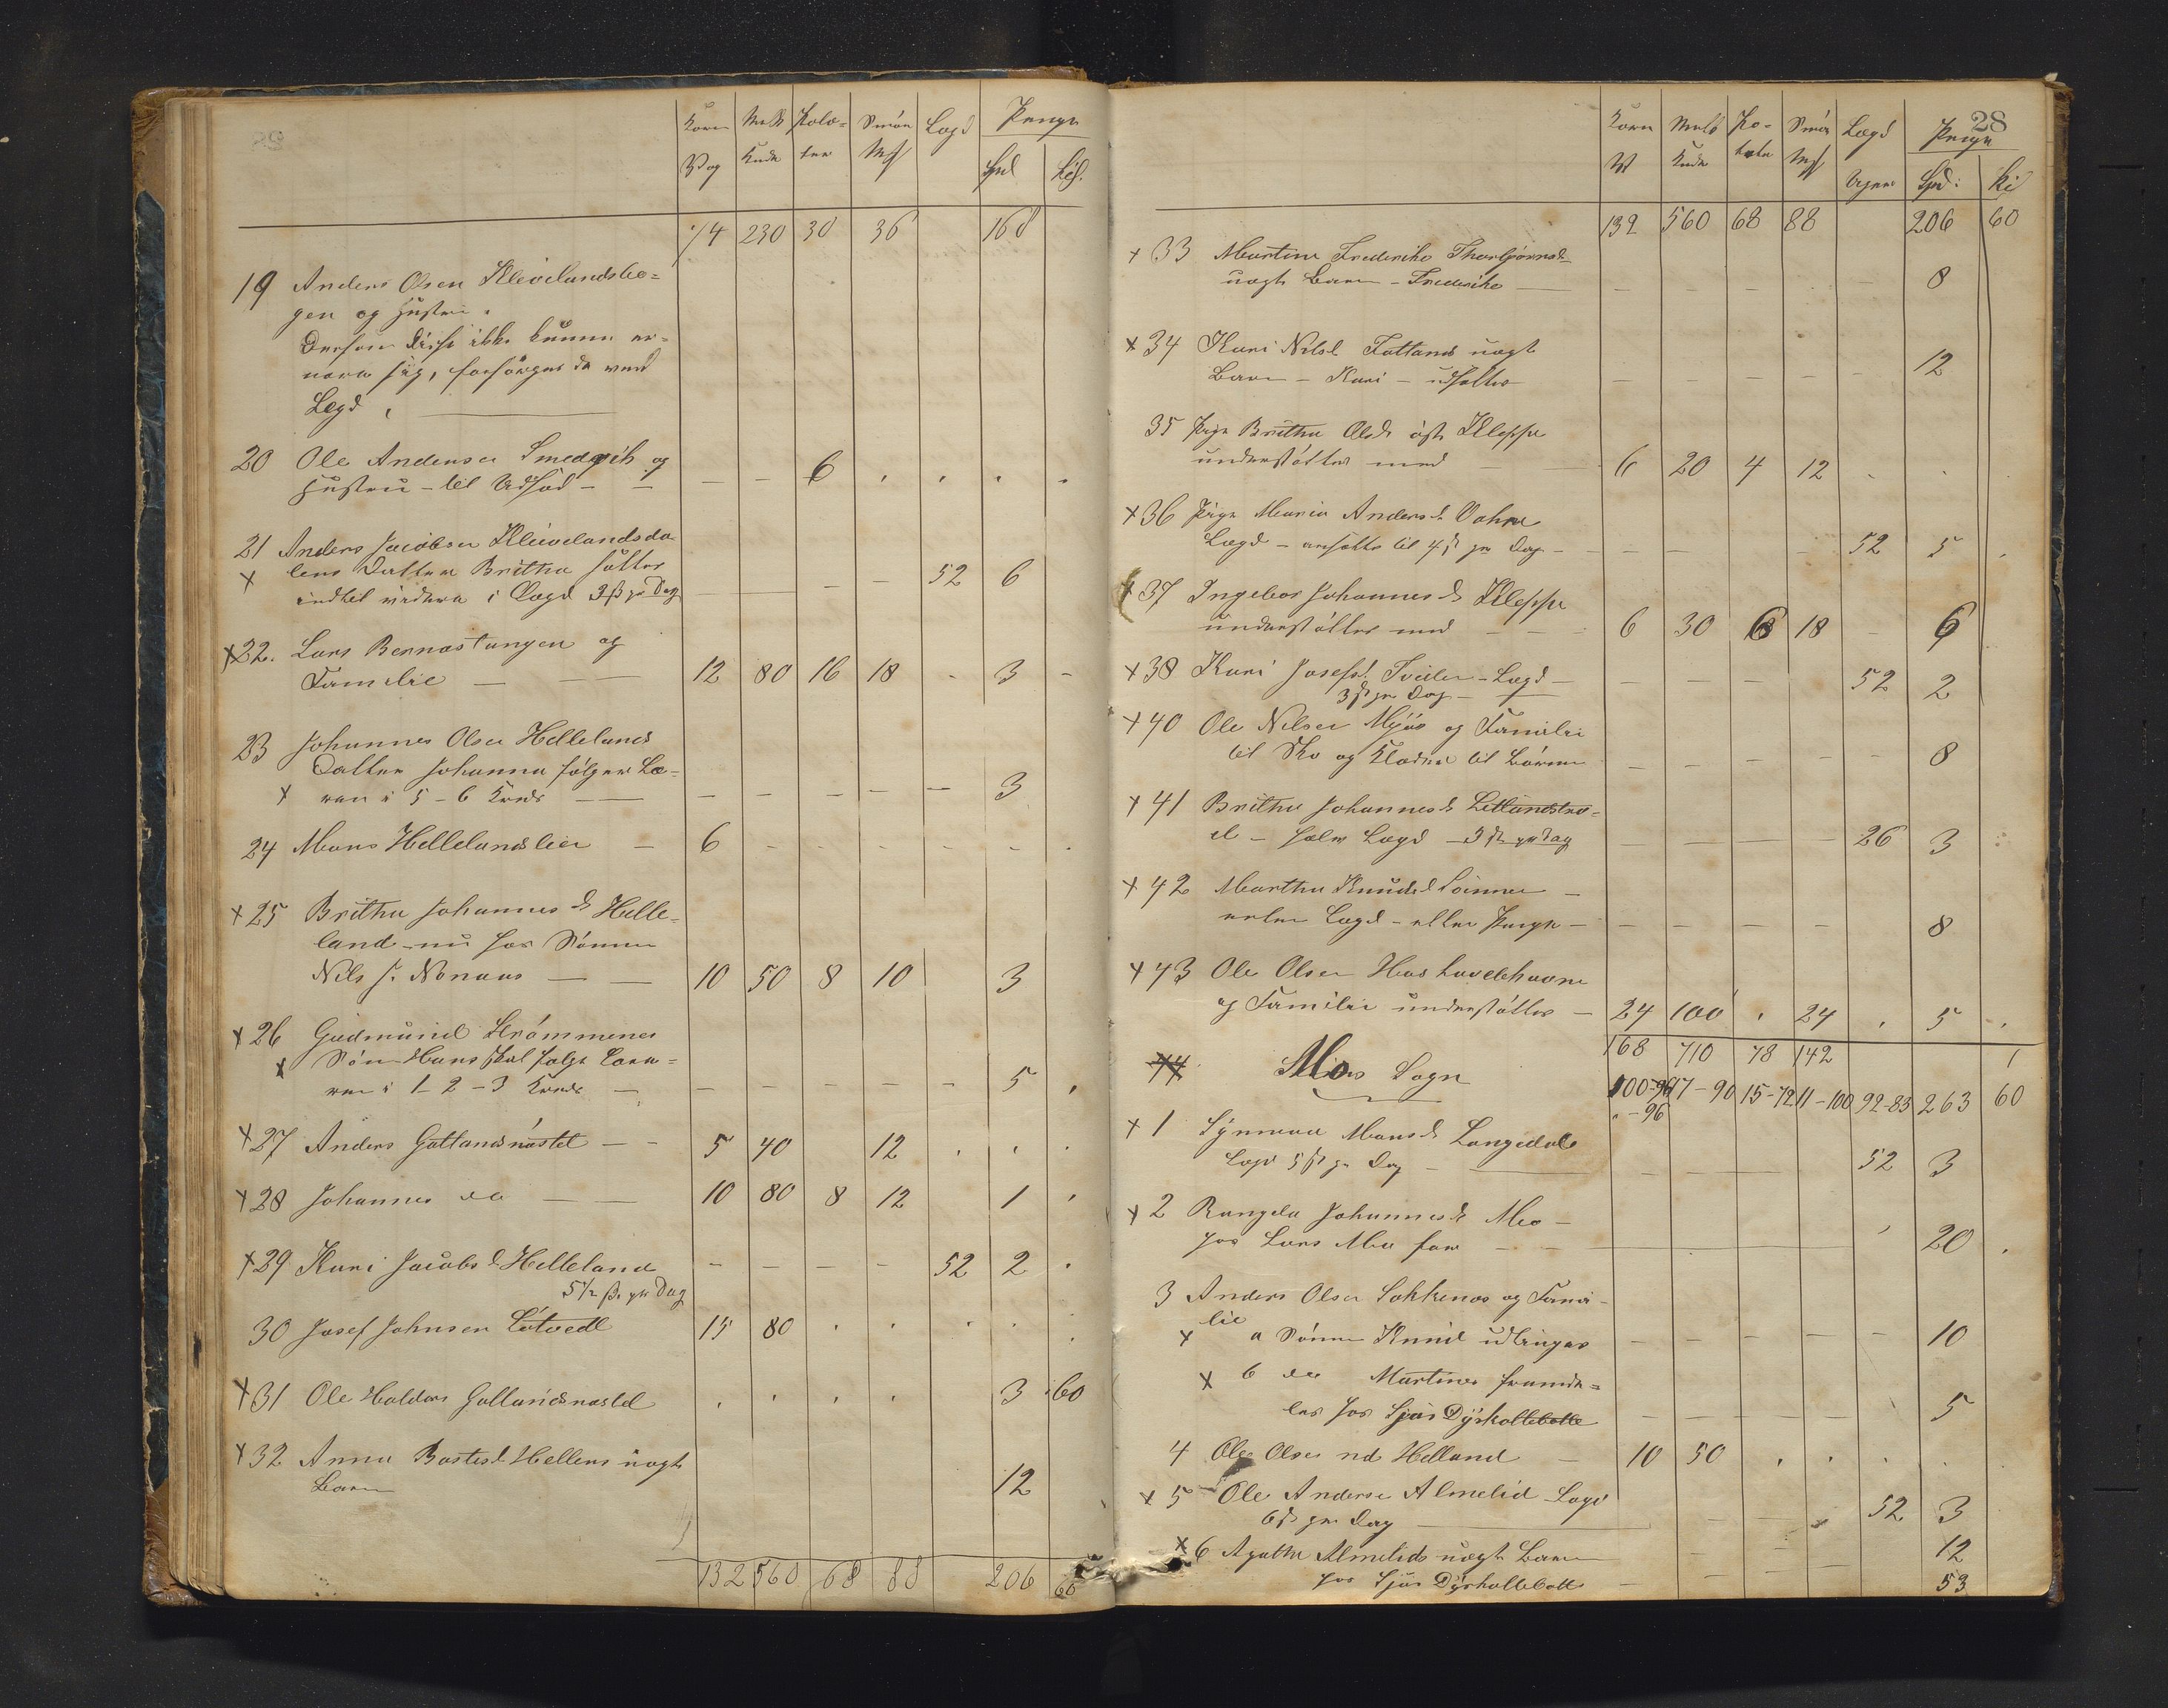 Korn Melk Pote- Smör Lægd Penge
Vog Kude ter Mk Spd Sk.
74 230 30 36 168
19 Anders Olsen Kleivelandsbo-
gen og Hustru.
Dersom disse ikke kunne er-
nære sig, forsörges de ved
Lægd,
20 Ole Andersen Smedvik og
Hustru - til Udsæd - — — — 6 . . . .
21 Anders Jacobsen Kleivelandsda-
x lens Datter Brithe sættes
indtil videre i Lægd 3 ß pr Dag — — — — 52 6
x 22. Lars Bernastangen og
Familie — — 12 80 16 18 - 3 -
23 Johannes Olsen Hellelands
Datter Johanna følger Læ-
x ren i 5 - 6 Kreds — — — — — — 3
24 Mons Hellelandslien — 6 - - - - - .
x 25 Brithe Johannesd. Helle-
land - nu hos Sönnen
Nils J. Nonaas — — 10 50 8 10 3
x 26 Gudmund Strömmenes
x Sön Hans skal følge Læra-
ren i 1 - 2 - 3 Kreds — — — — — — 5 .
x 27 Anders Gotlandsnæstet — - 5 40 12 . . .
x 28 Johannes do — — 10 80 8 12 1 .
x 29 Kari Jacobsd. Helleland — — — — 52 2 .
5 1/2 ß. pr Dag
30 Josef Johnsen Lötvedt 15 80 . . . . .
x 31 Ole Haldors Gotlandsnæstet . . . . 3 60
x 32 Anna Bastesd. Hellens uægte
Barn 12
132 560 68 88 206 60
28
Korn Melk Po- Smör Lægd Penge
W Kude teter Mk Uger Spd: Sk
132 560 68 88 206 60
x 33 Martine Frederike Thorbjörnsd.
uægte Barn - Frederike — — — — — 8
x 34 Kari Nilsd. Fotland uægte
Barn - Kari - udsættes — — — — — 12
35 Pige Brithe Olsd. öst. Kleppe
understöttes med — 6 20 4 12 . . .
x 36 Pige Maria Andersd. Vahne
Lægd - ansættes til 4 ß pr Dag - — — — - 52 5 .
x 37 Ingebor Johannesd. Kleppe
understöttes med — — — 6 30 6 18 - 6
x 38 Kari Josefsd. Tveiten - Lægd — — — — 52 2
3 ß pr Dag —
x 40 Ole Nilsen Mjös og Familie
til Sko og Klæder til Börnene — — — — — 8
x 41 Brithe Johannesd. Letlandstræ-
et - halv Lægd - 3 ß pr Dag — — — — 26 3
x 42 Marthe Knudsd. Loinnen —
enten Lægd - eller Penge — — — — — 8
x 43 Ole Olsen Haukaaslehavne
og Familie understöttes — 24 100 . 24 . 5 .
168 710 78 142 1
44 Mos Sogn 100-96 17-90 15-72 11-100 92-83 263 60
" - 96
x 1 Synneva Monsd. Langedale
Lægd 5 ß pr Dag — — — — — 52 3
x 2 Rangela Johannesd. Mo —
hos Lars Mo faar — — 20 .
3 Anders Olsen Sokkenæs og Fami-
lie
x a Sönnen Knud udbringes — — — — — 10
x b do Martines fremde-
les hos Sjur Dyrkolbotn — — — — 5
4 Ole Olsen nd Helland — 10 50 . . . .
x 5 Ole Andersen Almelid Lægd — — — 52 3
6 ß pr Dag
x 6 Agathe Almelids uægte Barn 12
hos Sjur Dyrkolbotn — — — — 53